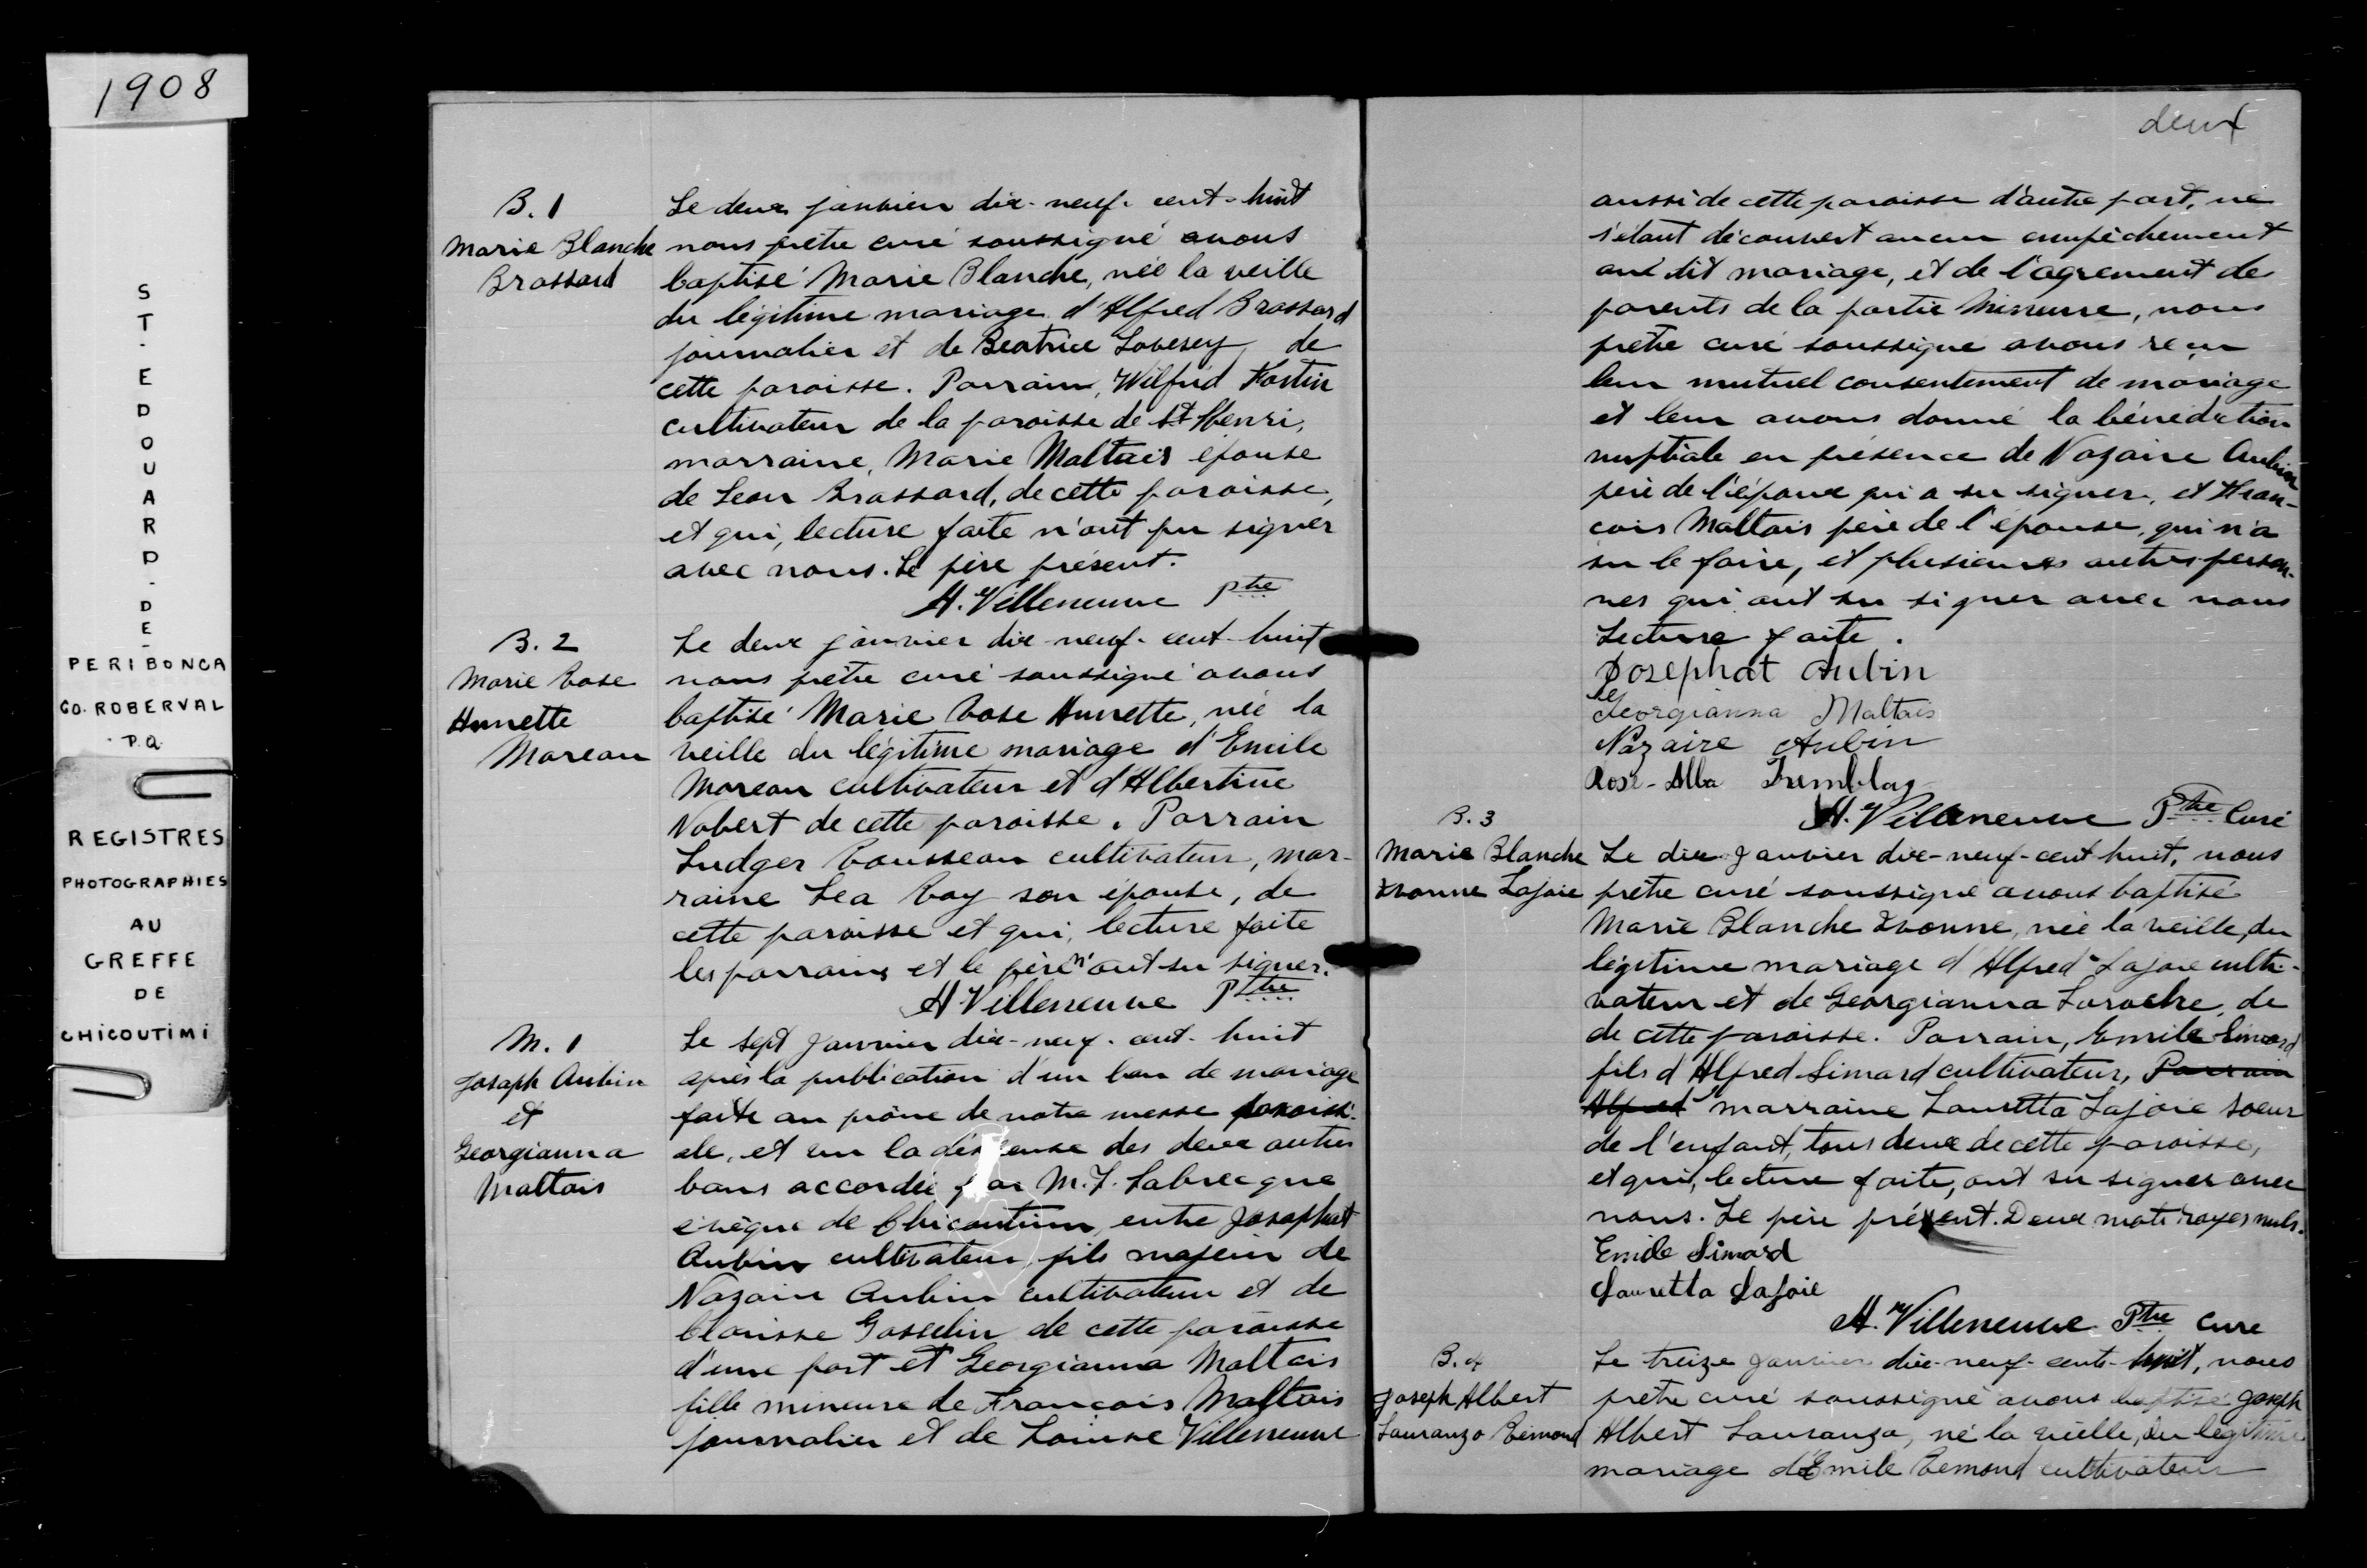 1908
ST. EDOUARD-DE-
PERIBONCA
CO. ROBERVAL
P.Q.
REGISTRES
PHOTOGRAPHIES
AU
GREFFE
DE
CHICOUTIMI
B. 1
Marie Blanche
Brassard
Le deux janvier dix-neuf-cent-huit
nous prêtre curé soussigné avons
baptisé Marie Blanche, née la veille
du légitime mariage d'Alfred Brassard
journalier et de Beatrice Lovesey, de
cette paroisse. Parrain, Wilfrid Fortin
cultivateur de la paroisse de St Henri,
marraine, Marie Maltais épouse
de Leon Brassard, de cette paroisse,
et qui, lecture faite n'ont pu signer
avec nous. Le père présent.
H. Villeneuve Ptre
B. 2
Marie Rose
Annette
Moreau
Le deux janvier dix-neuf-cent-huit
nous prêtre curé soussigné avons
baptisé Marie Rose Annette, née la
veille du légitime mariage d'Emile
Moreau cultivateur et d'Albertine
Nobert de cette paroisse. Parrain
Ludger Rousseau cultivateur, mar-
raine Lea Roy son épouse, de
cette paroisse et qui, lecture faite
les parrains et le père n'ont su signer.
H. Villeneuve Ptre
M. 1
Josaph Aubin
et
Georgianna
Maltais
Le sept janvier dix-neuf-cent-huit
après la publication d'un ban de mariage
faite au prône de notre messe paroissi-
ale, et vu la dispense des deux autres
bans accordée par M. T. Labrecque
évèque de Chicoutimi, entre Josaphat
Aubin cultivateur, fils majeur de
Nazaire Aubin cultivateur et de
Clarisse Gosselin de cette paroisse
d'une part et Georgianna Maltais
fille mineure de François Maltais
journalier et de Louise Villeneuve
deux
aussi de cette paroisse d'autre part, ne
s'étant découvert aucun empêchement
au dit mariage, et de l'agrement de
parents de la partie mineure, nous
prêtre curé soussigné avons reçu
leur mutuel consentement de mariage
et leur avons donné la bénédiction
nuptiale en présence de Nazaire Aubin
père de l'époux qui a su signer, et Fran-
cois Maltais père de l'épouse, qui n'a
su le faire, et plusieurs autres person-
nes qui ont su signer avec nous
Lecture faite.
Josephat Aubin
Georgianna Maltais
Nazaire Aubin
Rose-Alba Tremblay
H. Villeneuve Ptre Curé
B. 3
Marie Blanche
Yvonne Lajoie
Le dix janvier dix-neuf-cent huit, nous
prêtre curé soussigné avons baptisé
Marie Blanche Yvonne, née la veille, du
légitime mariage d'Alfred Lajoie culti-
vateur et de Georgianna Laroche, de
de cette paroisse. Parrain, Emile Simard
fils d'Alfred Simard cultivateur, Parrain
Alfred marraine Lauretta Lajoie soeur
de l'enfant, tous deux de cette paroisse,
et qui, lecture faite, ont su signer avec
nous. Le père présent. Deux mots rayés nuls.
Emile Simard
Lauretta Lajoie
H. Villeneuve Ptre Cure
B. 4
Joseph Albert
Lauranzo Rémond
Le treize janvier dix-neuf-cents-huit, nous
prêtre curé soussigné avons baptisé Joseph
Albert Lauranzo, né la veille, du légitime
mariage d'Emile Remond cultivateur